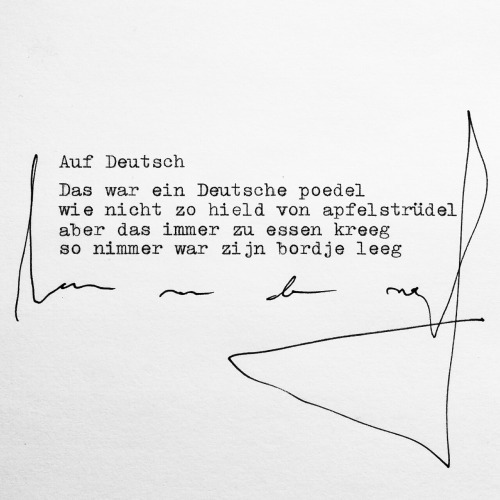 Auf Deutsch
Das war ein Deutsche poedel
wie nicht zo hield von apfelstrüdel
aber das immer zu essen kreeg
so nimmer war zijn bordje leeg